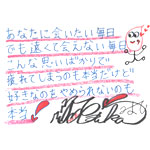 あなたに会いたい毎日
でも遠くて会えない毎日
こんな思いばかりで
疲れてしまうのも本当だけど
好きなのをやめられないのも
本当